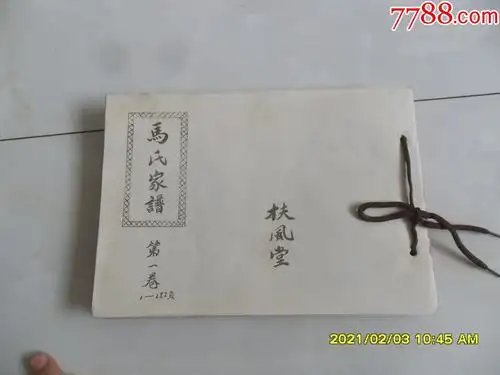 7788.com
馬氏家譜
第一卷
1—252页
扶風堂
2021/02/03 10:45 AM